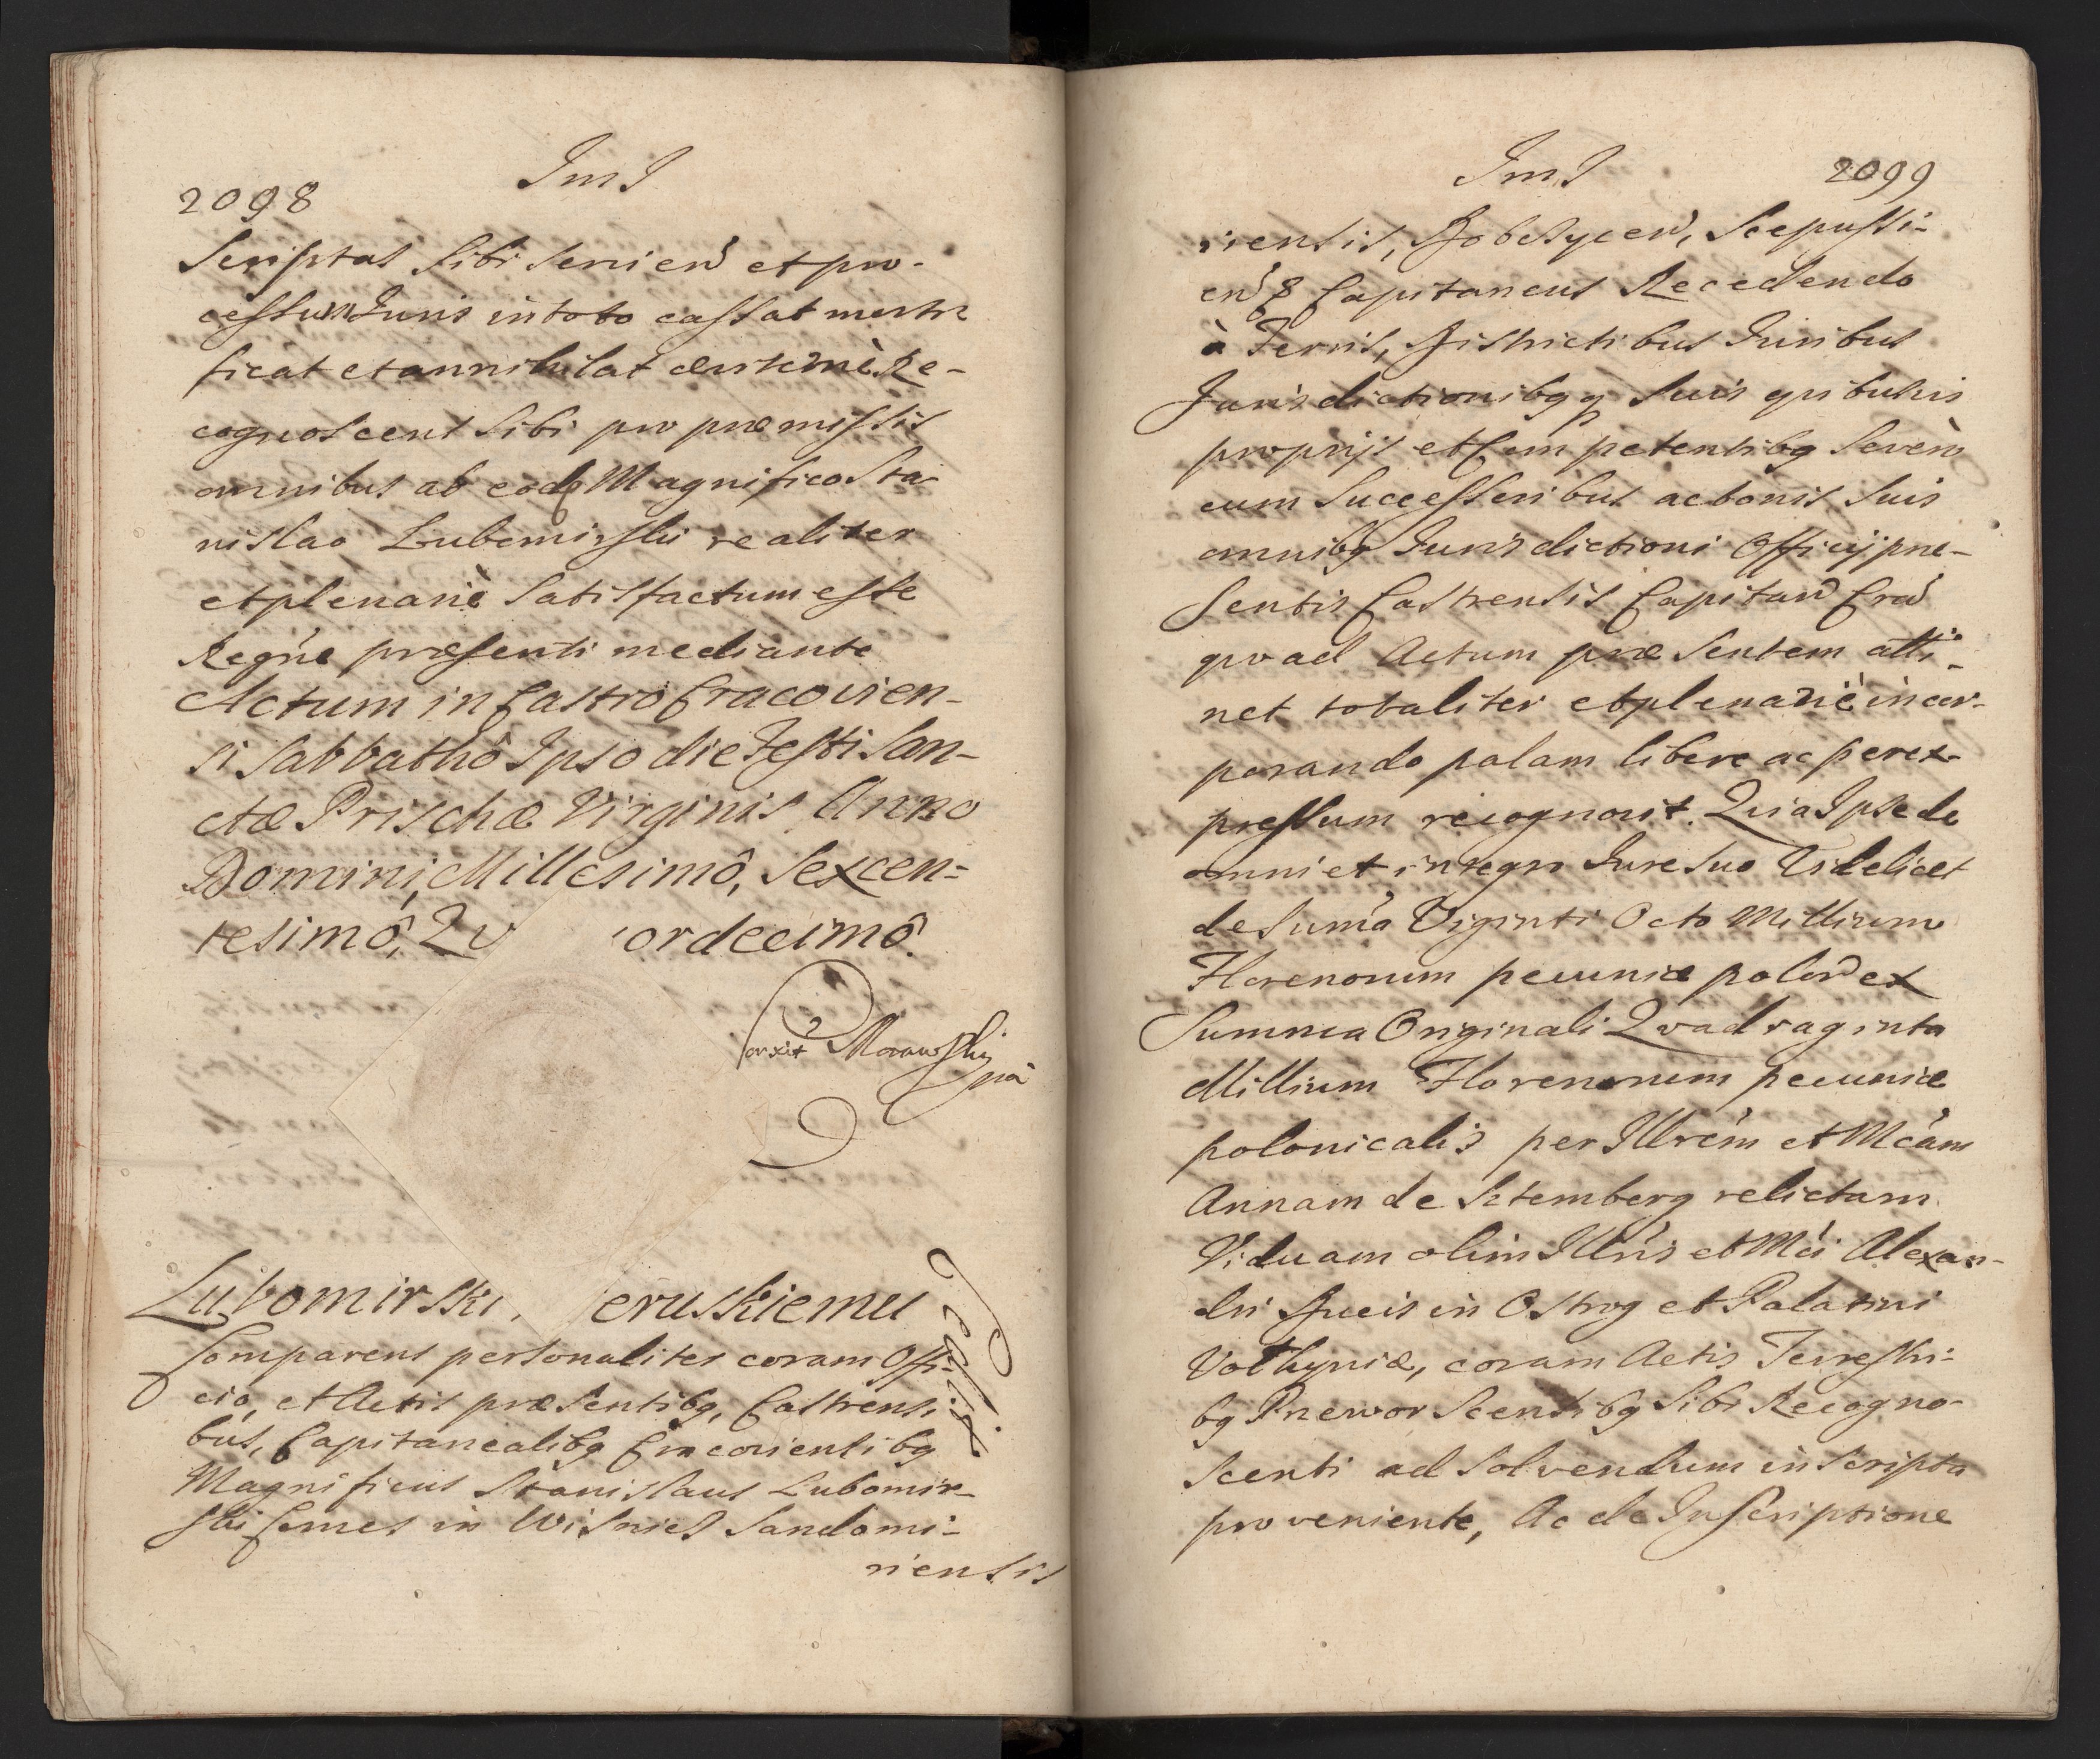 2098
JmJ
Scriptas sibi servien̄ et pro-
cessum Juris in toto cassat morti
ficat et annihilat
Re-
cognoscent sibi pro præmissis
omnibus ab eod Magnifico Sta-
nislao Lubomirski realiter
et plenariè satisfactum esse
Regn̄e præsenti mediante
Actum in Castro Cracovien-
si Sabbathô Ipso die Festi San-
ctæ Prischæ Virginis Anno
Domini, Millesimô, Sexcen=
tesimô, Qv ordecimô.
Corexit Morawski
Lubomirski, eruskiemu
Comparens personaliter coram Offi-
cio, et Actis præsentibq, Castrensi
bus, Capitanealibq Cracoviensibq
Magnificus Stanislaus Lubomir-
ski Comes in Wisnicz Sandomi-
riensis
JmJ
2099
riensis, Dobczycen̄, Scepussi-
en̄q Capitaneus Recedendo
à Terris, Districtibus Juribus
Jurisdictionibqq suis quibusvis
proprijs et Competentibq Seven̄
cum Successoribus ac bonis suis
omnibq Jurisdictioni Officij præ-
sentis Castrensis Capitan̄ Cra͞
qvoad Actum præsentem atti-
net totaliter et plenariè incor-
porando palam libere ac per ex-
pressum recognovit. Qvia Ipse de
omni et integro Jure suo Videlicet
de Suma Viginti Octo Millium
Florenorum pecuniæ polon̄ ex
Summa Originali Qvadraginta
Millium Florenorum pecuniæ
polonicalis per Illrem et Mcam
Annam de Sztemberg relictam
Viduam olim Illris et Mci Alexan-
dri Ducis in Ostrog et Palatini
Volhyniæ, coram Actis Terrestri-
bq Przeworscensibq sibi Recogno-
scenti ad solvendum inscripta
proveniente, Ac de Inscriptione